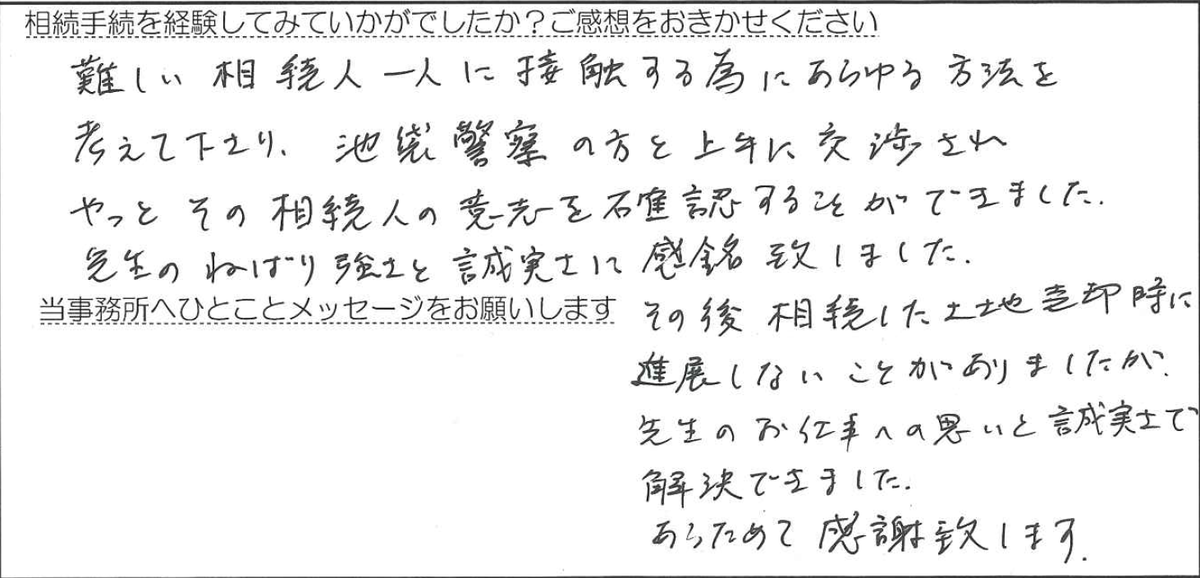 相続手続を経験してみていかがでしたか？ご感想をおきかせください
難しい相続人一人に接触する為にあらゆる方法を
考えて下さり、池袋警察の方と上手に交渉され
やっとその相続人の意志を確認することができました。
先生のねばり強さと誠実さに感銘致しました。
当事務所へひとことメッセージをお願いします
その後相続した土地売却時に
進展しないことがありましたが、
先生のお仕事への思いと誠実さで
解決できました。
あらためて感謝致します。